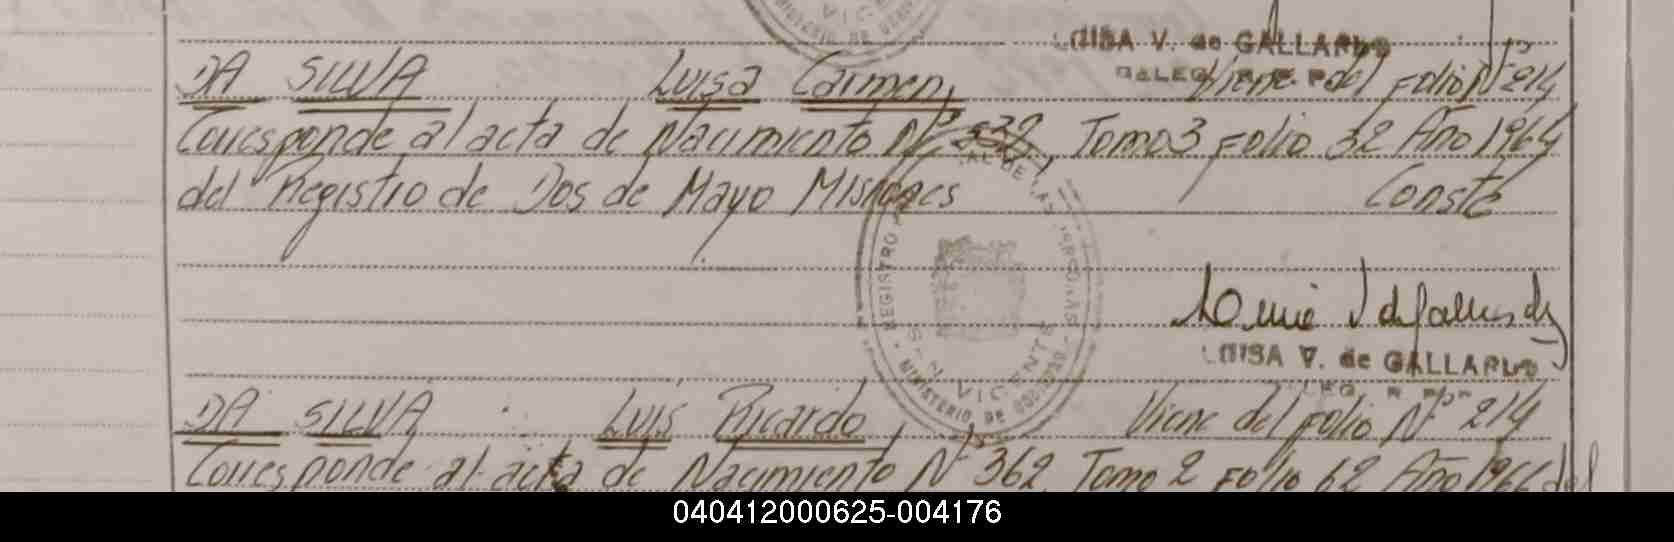 LUISA V. de GALLARDO
DELEG. R. P.
DA SILVA Luisa Carmen, Viene del folio Nº 214
Corresponde al acta de Nacimiento Nº 532, Tomo 3 folio 32 Año 1964
del Registro de Dos de Mayo Misiones Conste
REGISTRO DE LAS PERSONAS
SAN VICENTE
MINISTERIO DE GOBIERNO
LUISA V. de GALLARDO
DA SILVA Luis Ricardo, Viene del folio Nº 214
Corresponde al acta de Nacimiento Nº 362, Tomo 2 Folio 62 Año 1966 del
040412000625-004176